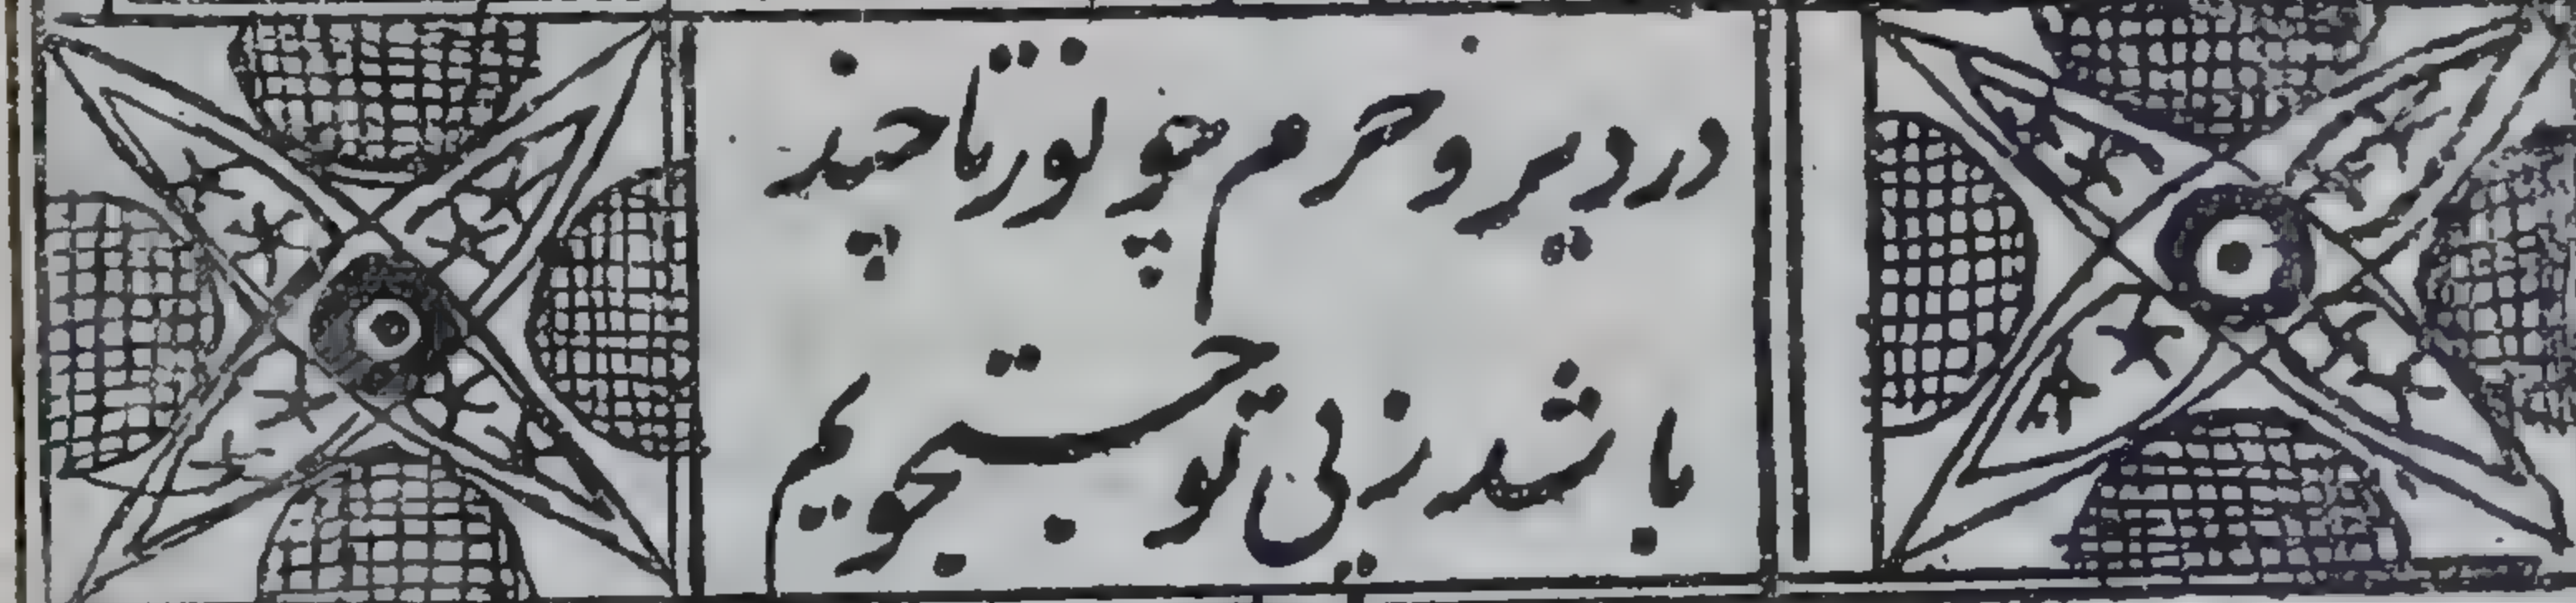 در دیر و حرم چو نور تا چند
باشد ز پی تو جستجویم